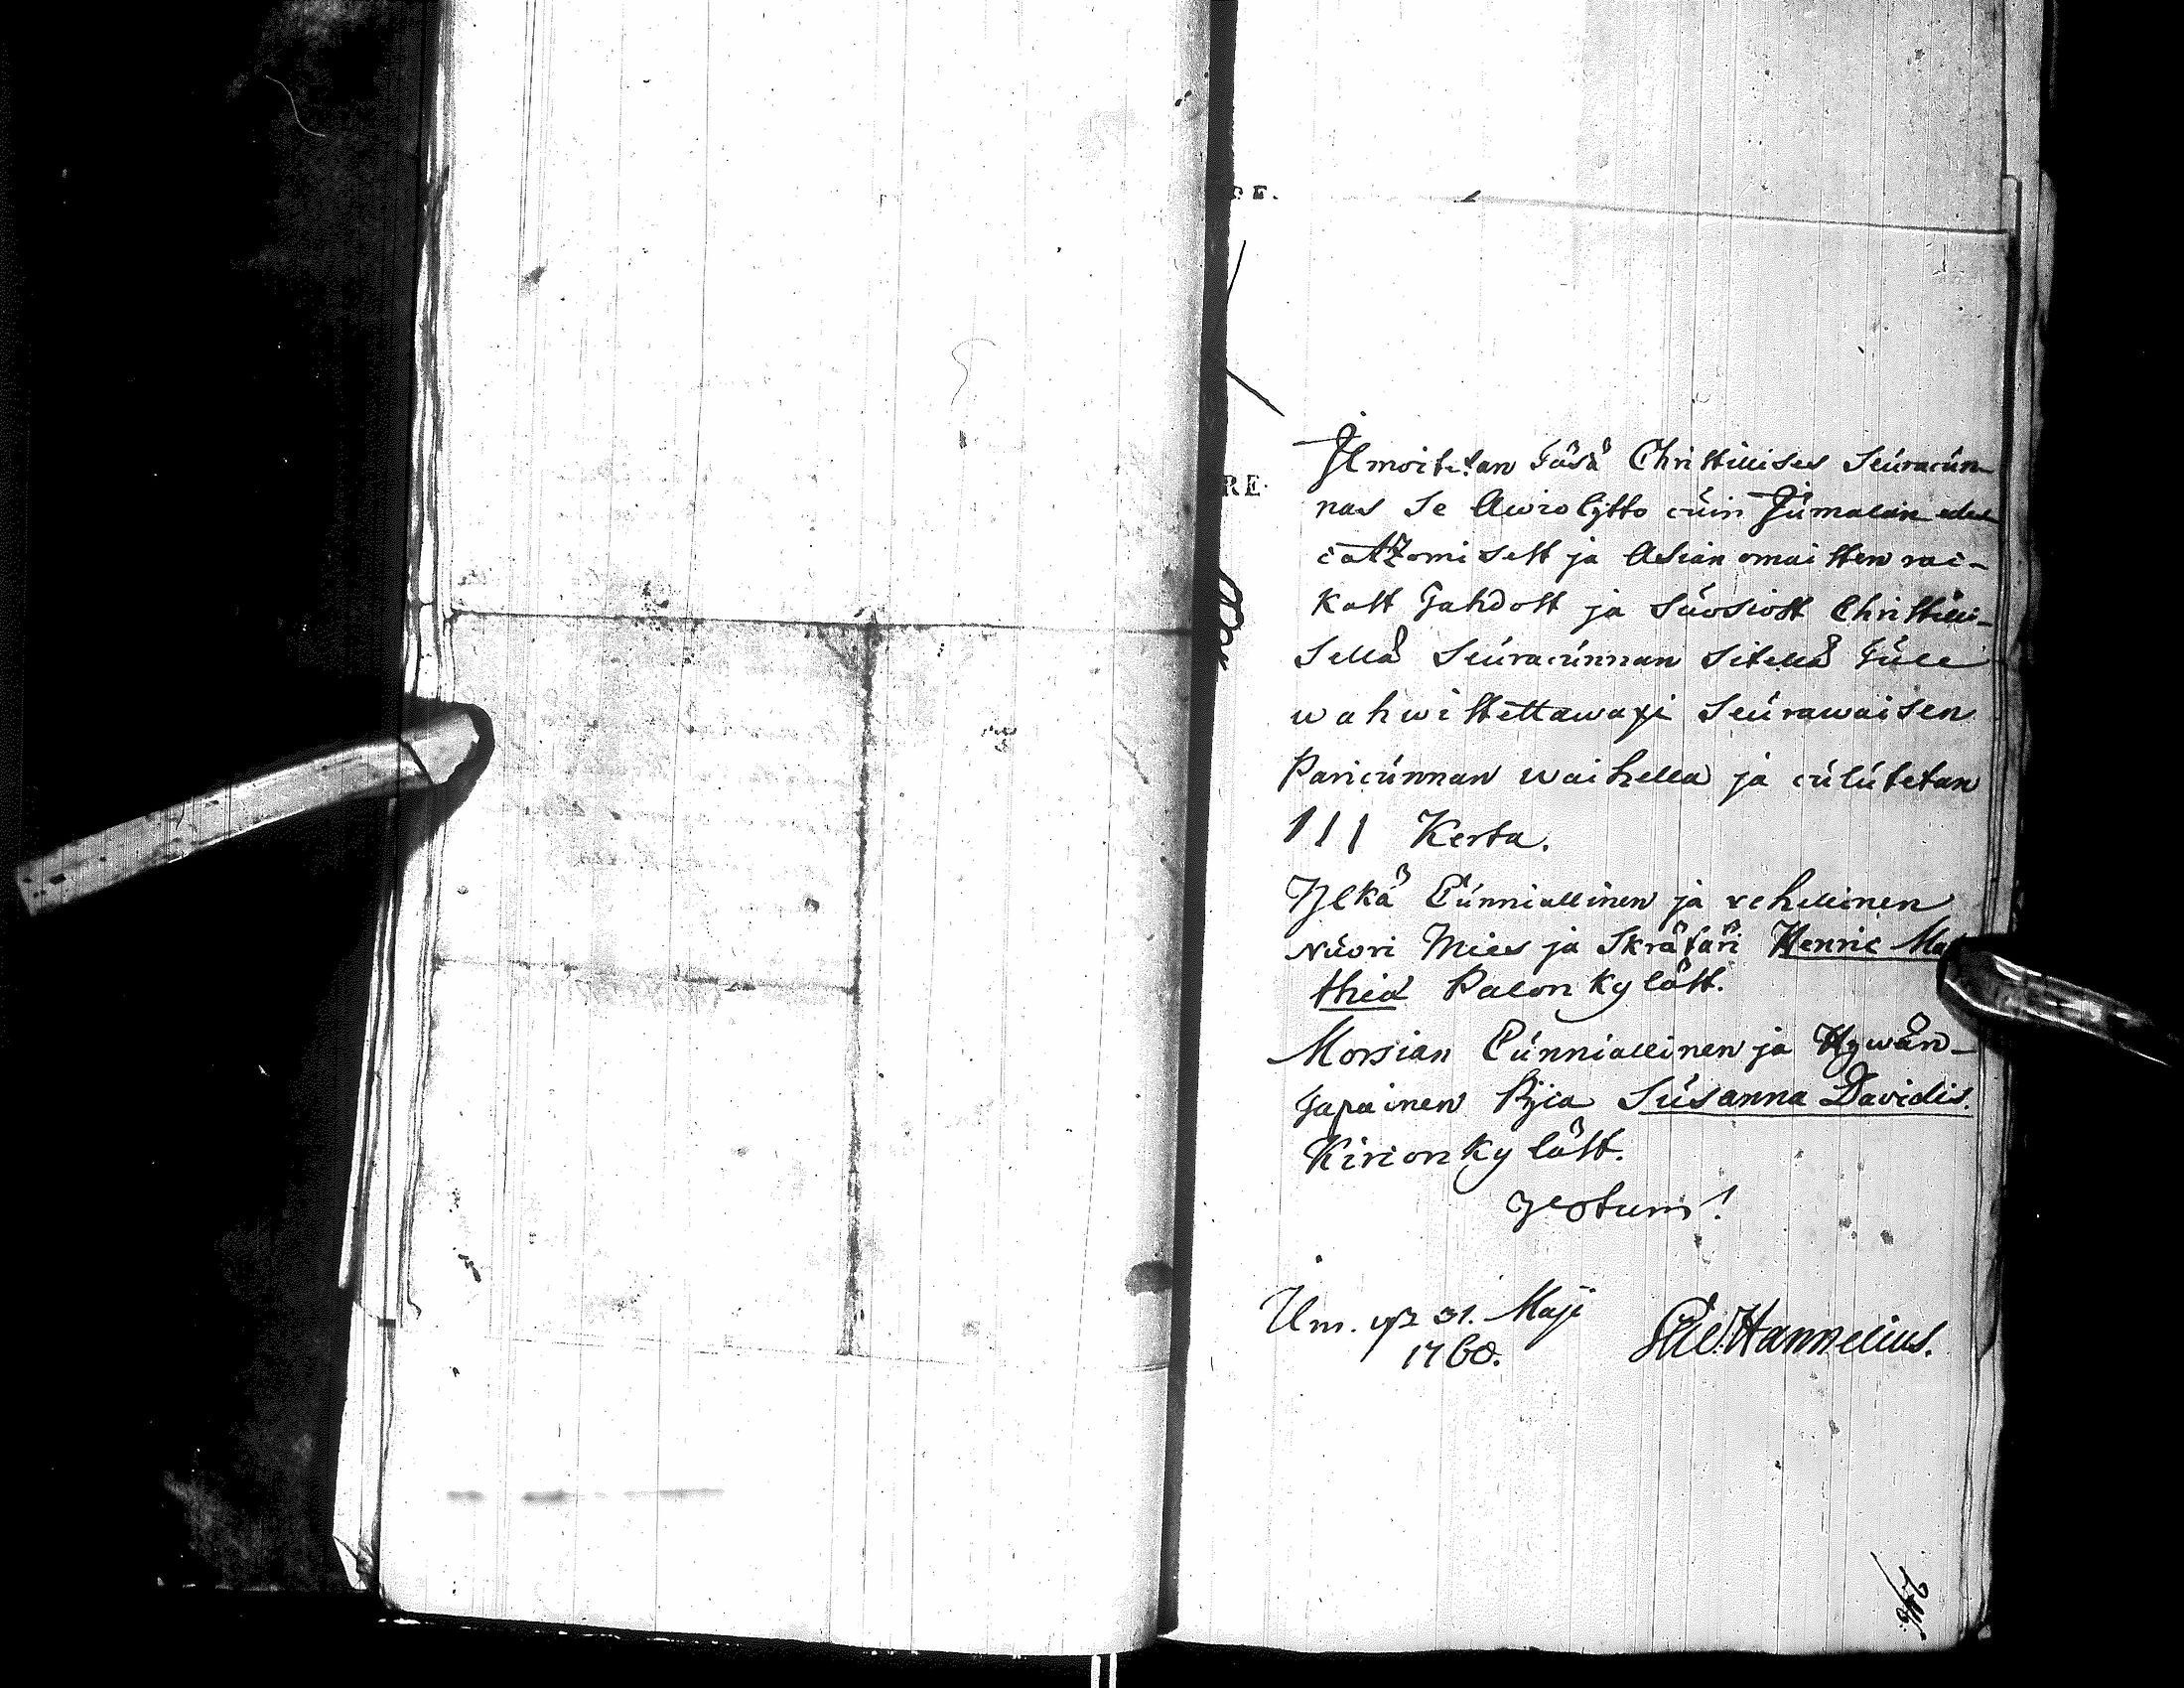 RE.
RE.
Ilmoitetan täsä Christillises Seuracun-
nas se Awiolijtto cuin Jumalan edes
catzomisest ja Asian omaisten rai-
kast tahdost ja suosiost Christilli-
sellä Seuracunnan sitellä tule
wahwistettawaxi Seurawaisen
Paricunnan waihella ja culutetan
111 Kerta.
Ylkä Cunniallinen ja rehellinen
Nuori Mies ja Skrätäri Henric Mat
thiæ Palon kyläst.
Morsian Cunniallinen ja Hywän-
tapainen Pijca Susanna Davidis.
Kirion kyläst.
Ulm. 31. Maji
1760.
Hannelius.